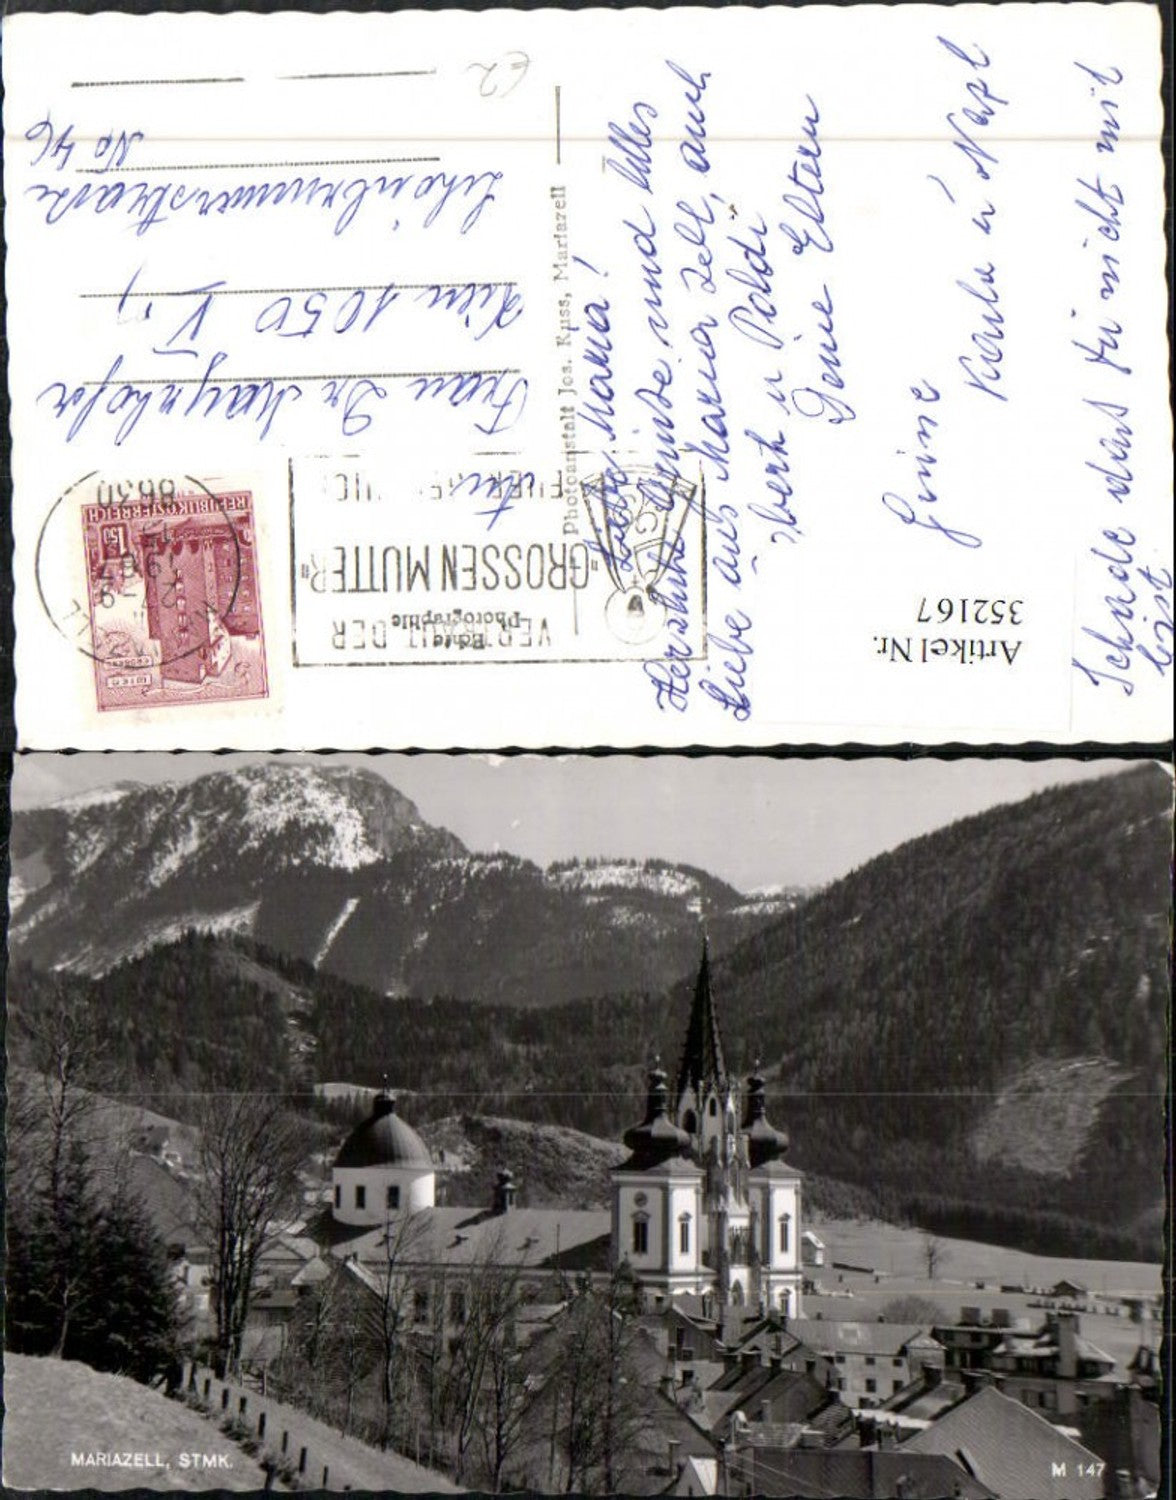 Liebe Mama!
Herzliche Grüsse und alles
Liebe aus Maria Zell, auch
Deine Eltern
Schade das Du nicht mit
bist
Frau Dr Mayrhofer
Wien 1050 V
Schönbrunnerstrasse
No 46
REPUBLIK ÖSTERREICH
1.50
WIEN
8630
VERTRAUT DER
"GROSSEN MUTTER"
Echte
Photographie
Photoanstalt Jos. Kuss, Mariazell
Artikel Nr.
352167
MARIAZELL, STMK.
M 147